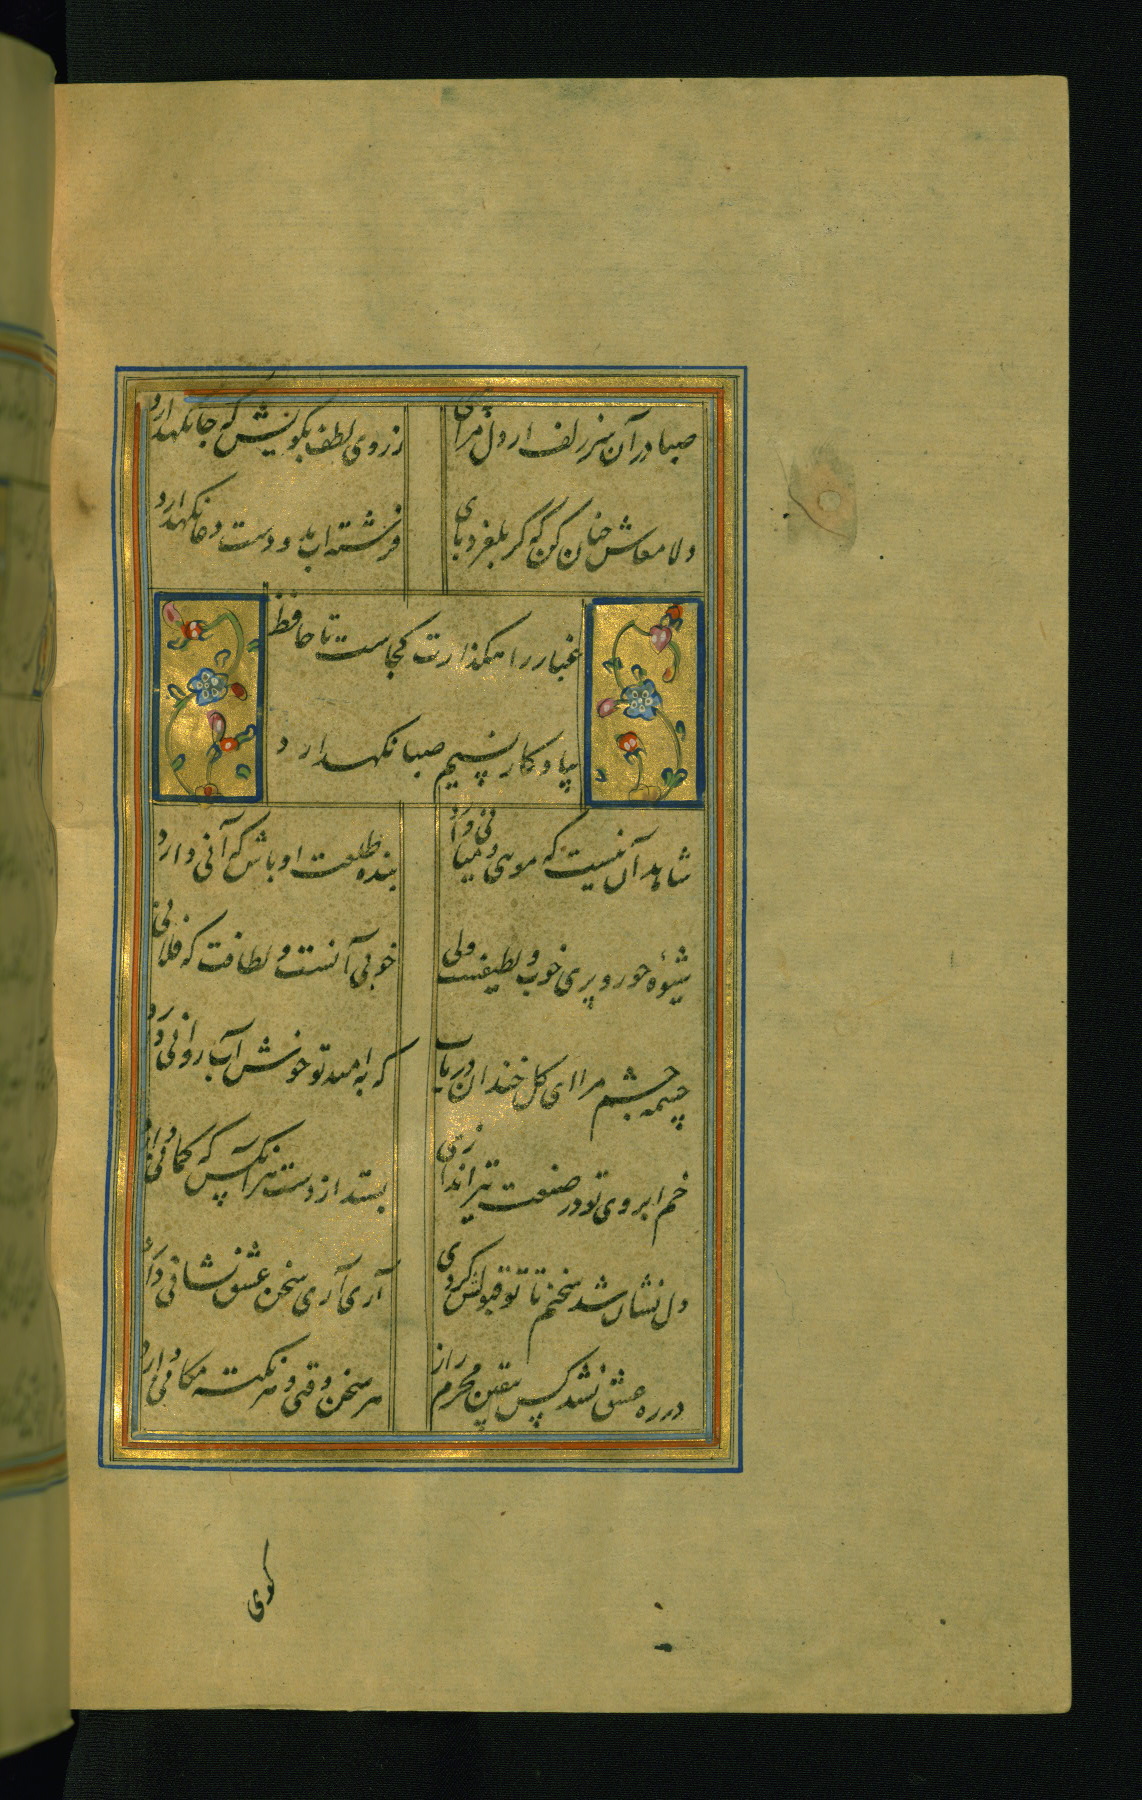 صبا در آن سر زلف ار دل مرا بینی
ز روی لطف بگویش که جا نگهدارد
دلا معاش چنان کن که گر بلغزد پای
فرشته ات بدو دست دعا نگهدارد
غبار راهگذارت کجاست تا حافظ
بیادگار نسیم صبا نگهدارد
شاهد آن نیست که مویی و میانی دارد
بنده طلعت او باش که آنی دارد
شیوه حور و پری خوب و لطیفست ولی
خوبی آنست و لطافت که فلانی
چشمه چشم مرا ای گل خندان دریاب
که به امید تو خوش آب روانی دارد
خم ابروی تو در صنعت تیراندازی
بستد از دست هر آنکس که کمانی دارد
دل نشان شد سخنم تا تو قبولش کردی
آری آری سخن عشق نشانی دارد
در ره عشق نشد کس بیقین محرم راز
هر سخن وقتی و هر نکته مکانی دارد
گوی